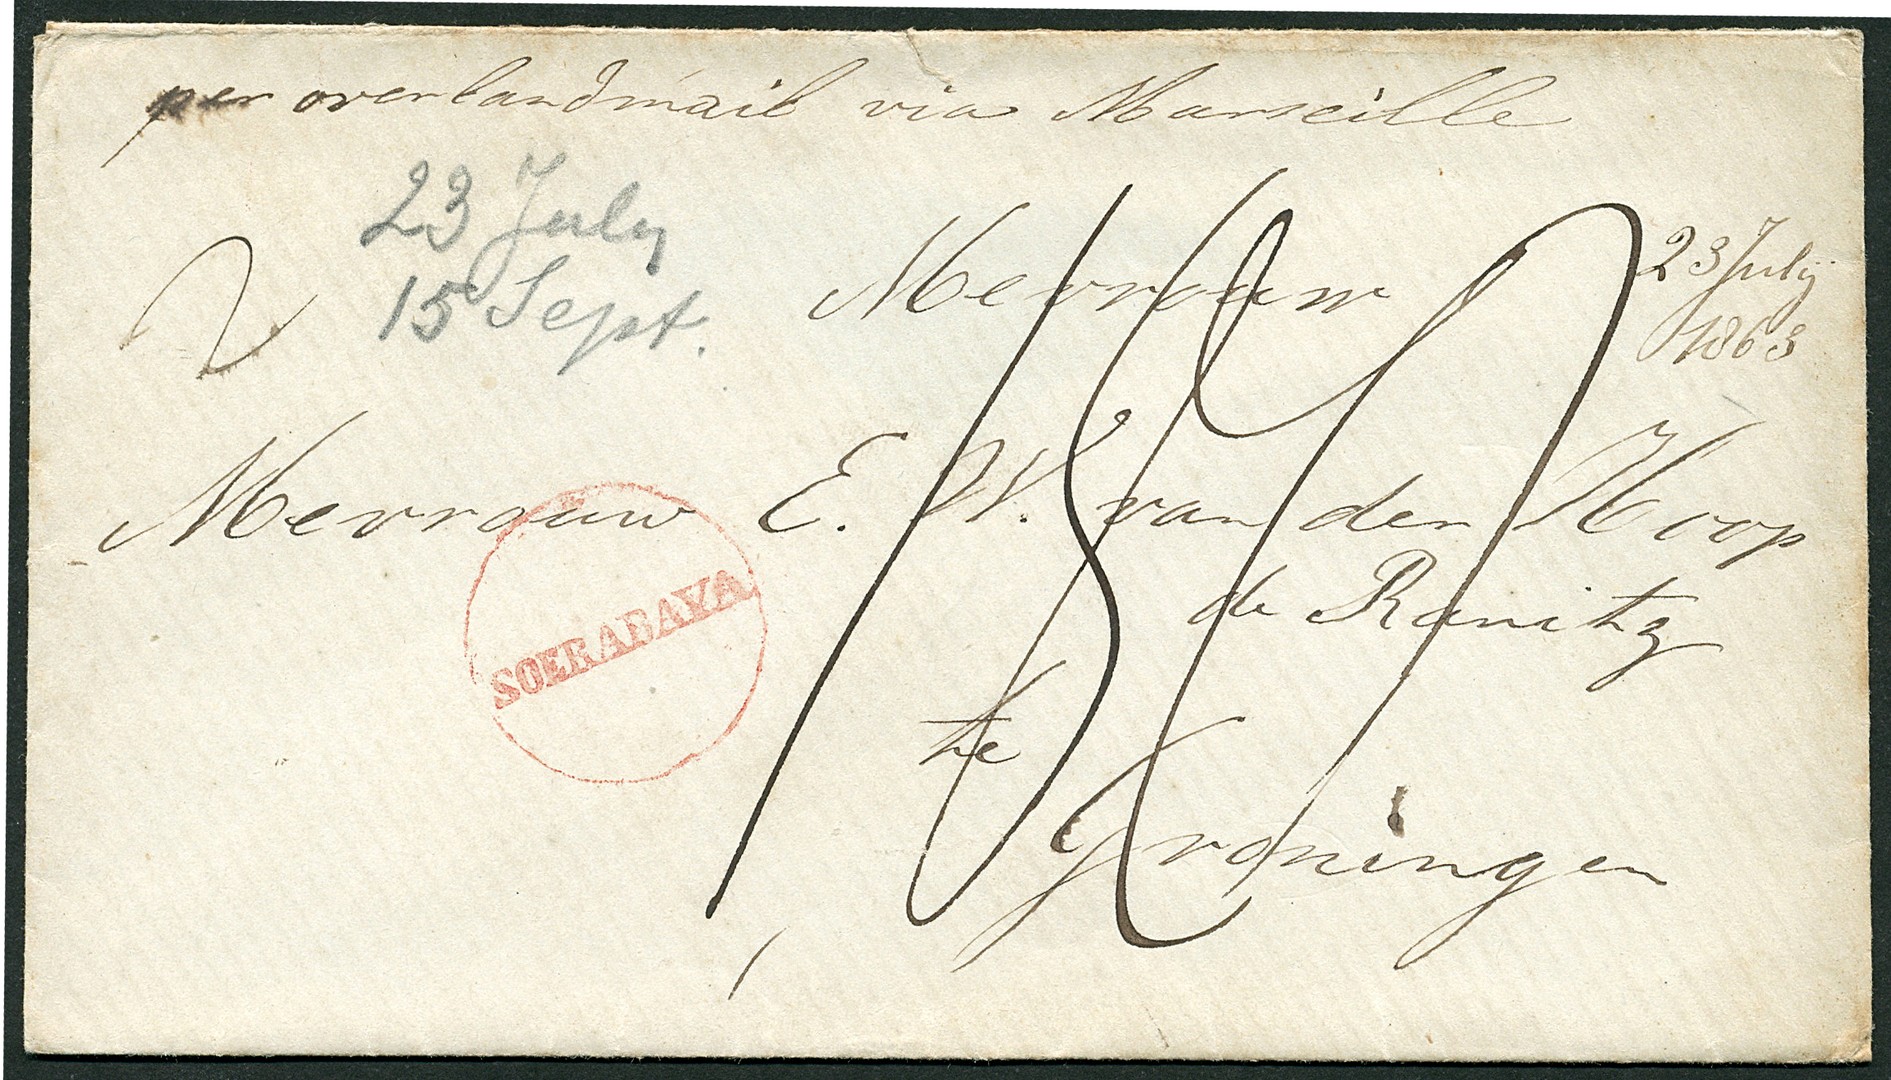 per overlandmail via Marseille
23 July
15 Sept.
2
Mevrouw
23 July
1863
Mevrouw E. W. van der Hoop
de Ranitz
SOERABAYA
te
Groningen